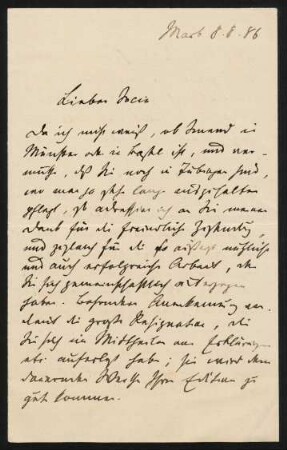 Marb 8.8.86
Lieber Socin
Da ich nicht weiß, ob Smend in
Münster oder in Basel ist, und ver-
muthe, daß Sie noch in Tübingen sind,
wo man ja sehr lange auszuhalten
pflegt, so adressire ich an Sie meinen
Dank für die freundliche Zusendung,
und zugleich für die so äußerst nützliche
und auch erfolgreiche Arbeit, der
Sie sich gemeinschaftlich unterzogen
haben. Besondere Anerkennung ver-
dient die große Resignation, die
Sie sich im Mittheilen von Erklärungen
auferlegt haben; sie wird dem
dauernden Werthe Ihrer Edition zu
gut kommen.